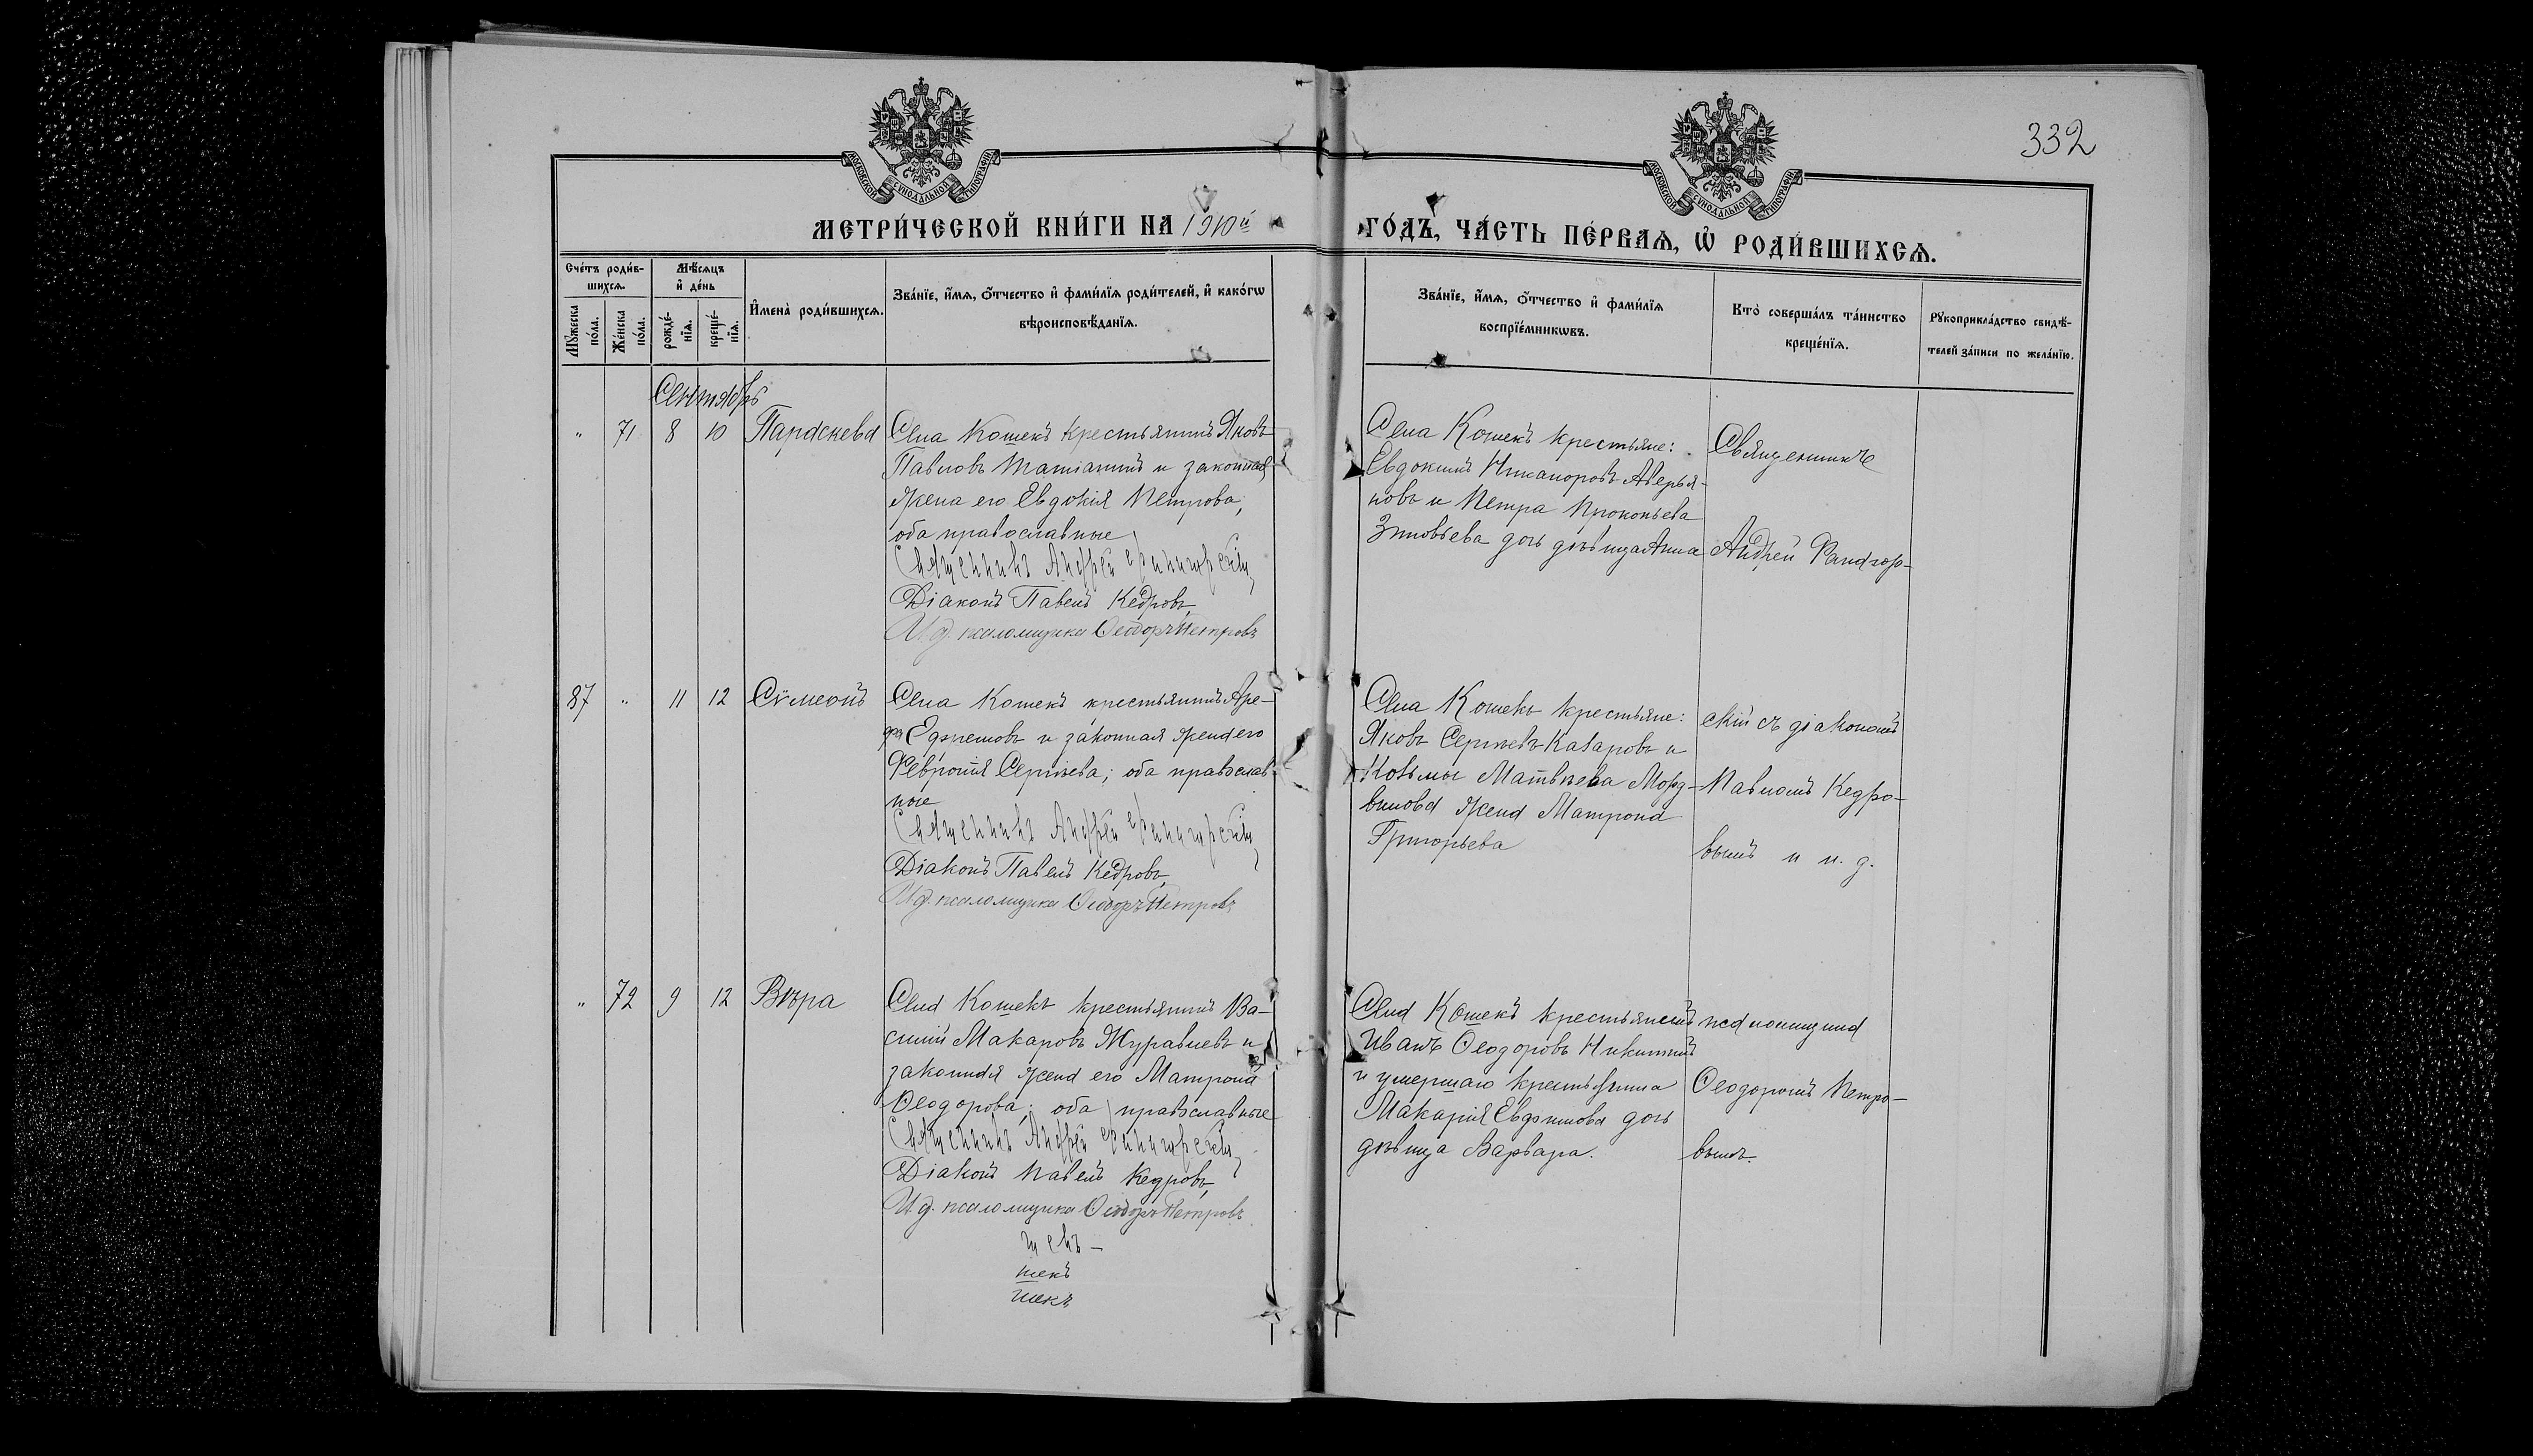 332
МОСКОВСКОЙ СѴНОДАЛЬНОЙ ТИПОГРАФІИ
МОСКОВСКОЙ СѴНОДАЛЬНОЙ ТИПОГРАФІИ
МЕТРИ́ЧЕСКОЙ КНИ́ГИ НА 1910й
ГО́ДЪ, ЧА́СТЬ ПЕ́РВАѦ, Ѡ҆ РОДИ́ВШИХСѦ.
Сче́тъ роди́в-
шихсѧ.
Мꙋжеска по́ла.
Же́нска по́ла.
Мѣ́сѧцъ
и҆ де́нь
рожде́-
нїѧ.
креще́-
нїѧ.
И҆мена̀ роди́вшихсѧ.
Зва́нїе, и҆́мѧ, ѻ҆́тчество и҆ фами́лїѧ роди́телей, и҆ како́гѡ
вѣроисповѣ́данїѧ.
Зва́нїе, и҆́мѧ, ѻ҆́тчество и҆ фами́лїѧ
воспрїе́мникѡвъ.
Кто̀ соверша́лъ та́инство
креще́нїѧ.
Рꙋкоприкла́дство свидѣ́-
телей за́писи по жела́нїю.
Сентябрь
" 71 8 10 Параскева
Села Кошекъ крестьянинъ Яковъ
Павловъ и законная
жена его Евдокія Петрова,
оба православные
Священникъ Андрей
Діаконъ Павелъ Кедровъ,
И.д. псаломщика Ѳеодоръ Петровъ
Села Кошекъ крестьяне:
Евдокимъ Никаноровъ Аверья-
новъ и Петра Прокопьева
Зиновьева дочь дѣвица Анна
Священникъ
Андрей
87 " 11 12 Сѵмеонъ
Села Кошекъ крестьянинъ Аре-
фа и законная жена его
Февронія Сергѣева; оба православ-
ные
Священникъ Андрей
Діаконъ Павелъ Кедровъ,
И.д. псаломщика Ѳеодоръ Петровъ
Села Кошекъ крестьяне:
Яковъ Сергѣевъ Казаровъ и
Козьмы Матвѣева Морд-
винова жена Матрона
Григорьева
скій съ діакономъ
Павломъ Кедро-
вымъ и и. д.
" 72 9 12 Вѣра
Села Кошекъ крестьянинъ Ва-
силій Макаровъ Журавлевъ и
законная жена его Матрона
Ѳеодорова; оба православные
Священникъ Андрей
Діаконъ Павелъ Кедровъ,
И.д. псаломщика Ѳеодоръ Петровъ
шекъ –
шекъ
шекъ
Села Кошекъ
Иванъ Ѳеодоровъ Никитинъ
и умершаго крестьянина
Макарія Евфимова дочь
дѣвица Варвара.
псаломщика
Ѳеодоромъ Петро-
вымъ.